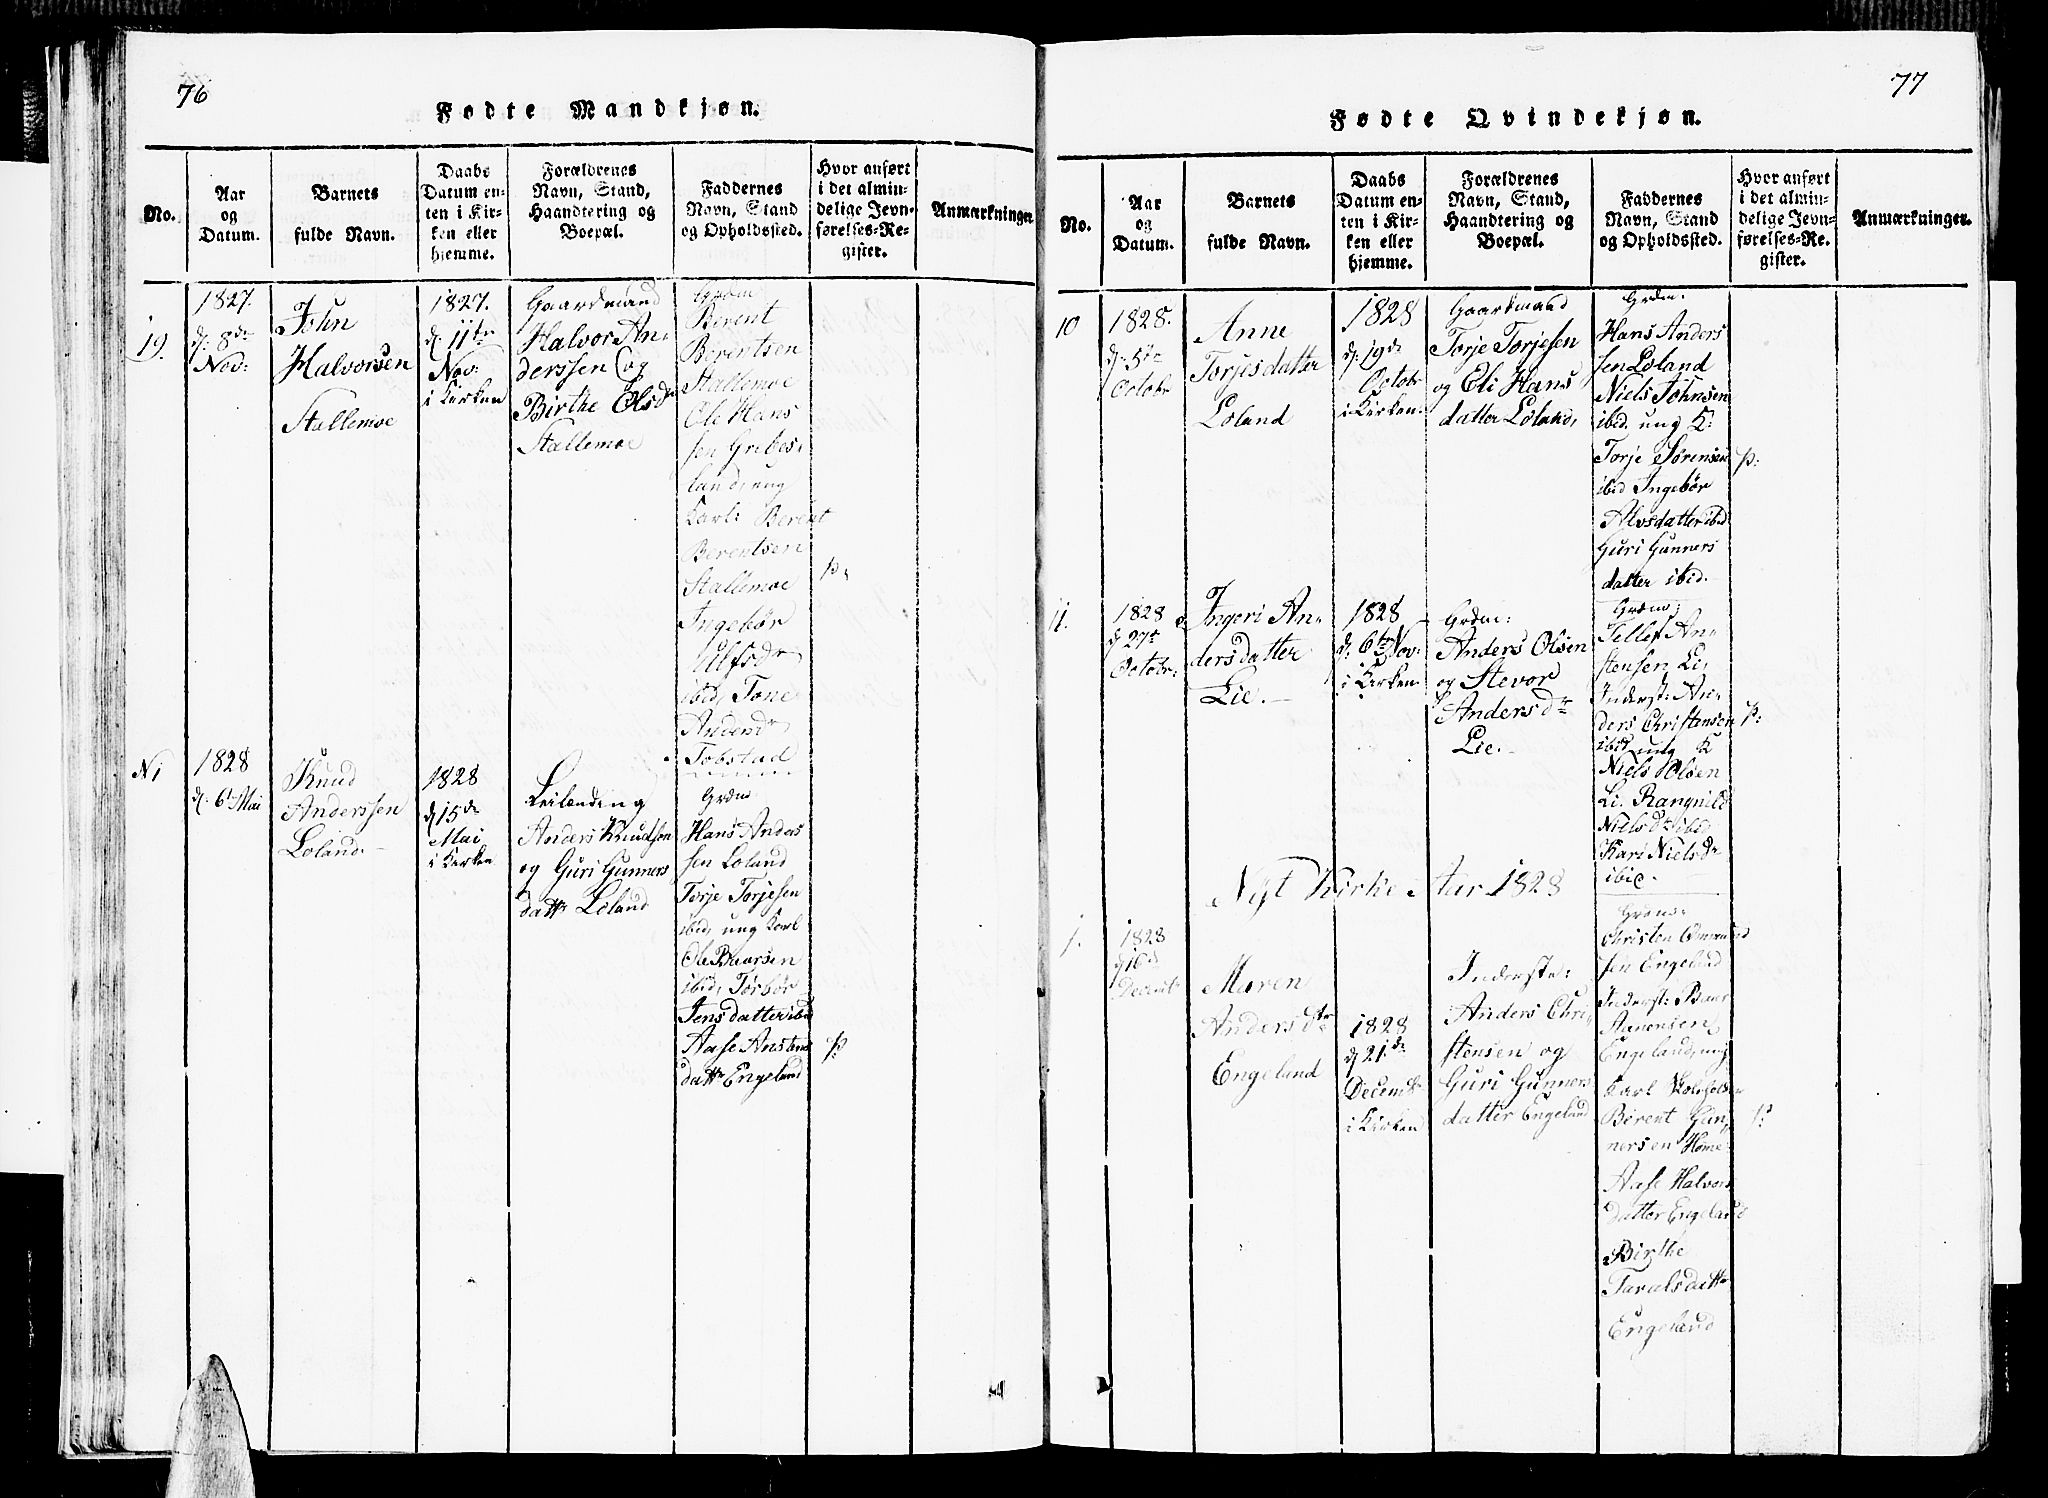 76
Fødte Mandkjøn.
No.
Aar
og
Datum.
Barnets
fulde Navn.
Daabs
Datum en-
ten i Kir-
ken eller
hjemme.
Forældrenes
Navn, Stand,
Haandtering og
Boepæl.
Faddernes
Navn, Stand
og Opholdssted.
Hvor anført
i det almin-
delige Jevn-
førelses-Re-
gister.
Anmærkninger
19.
1827.
d. 8de
Nov:
John
Halvorsen
Stallemoe
1827.
d. 11te
Nov:
i Kirken
Gaardmand
Halvor An-
derssen og
Birthe Olsdr
Stallemoe
Grdm
Berent
Berentsen
Stallemoe
Ole Hans
sen Gribes-
land, ung
Karl: Berent
Berentsen
Stallemoe
Ingebór
Ulfsdr
ibid, Tone
Andersdr
Tobstad
P:
N 1
1828
d. 6t Mai
Knud
Anderssen
Loland.
1828
d 15de
Mai
i Kirken
Leilænding
Anders Knudsen
og Guri Gunners
dattr Loland
Grdm
Hans Anders
sen Loland
Torje Torjesen
ibid, ung Karl
Ole Baarsen
ibid, Torbór
Jensdatter ibid
Aase Anstens
dattr Engeland
P:
77
Fødte Qvindekjøn.
No.
Aar
og
Datum.
Barnets
fulde Navn.
Daabs
Datum en-
ten i Kir-
ken eller
hjemme.
Forældrenes
Navn, Stand,
Haandtering og
Boepæl.
Faddernes
Navn, Stand
og Opholdssted.
Hvor anført
i det almin-
delige Jevn-
førelses-Re-
gister.
Anmærkninger.
10
1828.
d. 5te
Octobr
Anne
Torjesdatter
Loland
1828
d. 19de
Octobr
i Kirken.
Gaardmand
Torje Torjesen
og Eli Hans
datter Loland,
Grdm.
Hans Anders
sen Loland
Niels Johnsen
ibid. ung K:
Torje Sörensen
ibid Ingebór
Alvsdatter ibid
Guri Gunners
datter ibid.
P:
11.
1828
d 27de
Octobr:
Ingeri An-
dersdatter
Lie.
1828
d. 6te Nov:
i Kirken
Grdm:
Anders Olsen
og Stevor
Andersdr
Lie.
Grdm:
Tellef An-
stensen Li,
Inderst: An-
ders Christensen
ibid ung K
Niels Olsen
Li. Rangnild
Nielsdr ibid
Kari Nielsdr
ibid.
P:
Nyt Kirke Aar 1828
1.
1828
d 10de
Decembr
Maren
Andersdtr
Engeland
1828
d 21de
Decembr
i Kirken
Inderste:
Anders Chri-
stensen og
Guri Gunners
datter Engeland
Grdm:
Christen Osmund
sen Engeland
Inderst: Baar
Aanonsen
Engeland, ung
Karl
Berent Gun
nersen Home
Aase Halvors
datter Engeland
Birthe
Taralsdattr
Engeland
P: